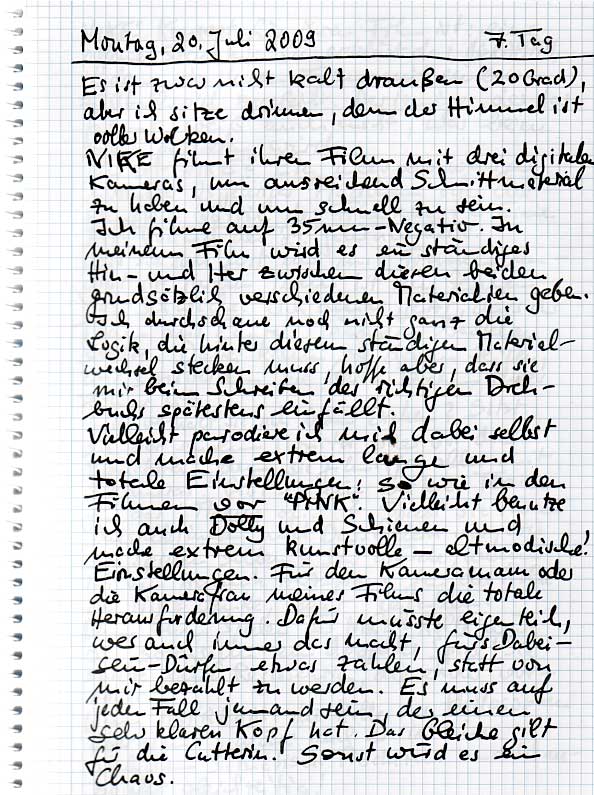 Montag, 20. Juli 2009 7. Tag
Es ist zwar nicht kalt draußen (20 Grad),
aber ich sitze drinnen, denn der Himmel ist
voller Wolken.
NIKE filmt ihren Film mit drei digitalen
Kameras, um ausreichend Schnittmaterial
zu haben und um schnell zu sein.
Ich filme auf 35mm-Negativ. In
meinem Film wird es ein ständiges
Hin- und Her zwischen diesen beiden
grundsätzlich verschiedenen Materialien geben.
Ich durchschaue noch nicht ganz die
Logik, die hinter diesem ständigen Material-
wechsel stecken muss, hoffe aber, dass sie
mir beim Schreiben des richtigen Dreh-
buchs spätestens einfällt.
Vielleicht parodiere ich mich dabei selbst
und mache extrem lange und
totale Einstellungen, so wie in den
Filmen vor "PINK". Vielleicht benutze
ich auch Dolly und Schienen und
mache extrem kunstvolle – altmodische!
Einstellungen. Für den Kameramann oder
die Kamerafrau meines Films die totale
Herausforderung. Dafür müsste eigentlich,
wer auch immer das macht, fürs Dabei-
sein-Dürfen etwas zahlen, statt von
mir bezahlt zu werden. Es muss auf
jeden Fall jemand sein, der einen
sehr klaren Kopf hat. Das Gleiche gilt
für die Cutterin. Sonst wird es ein
Chaos.